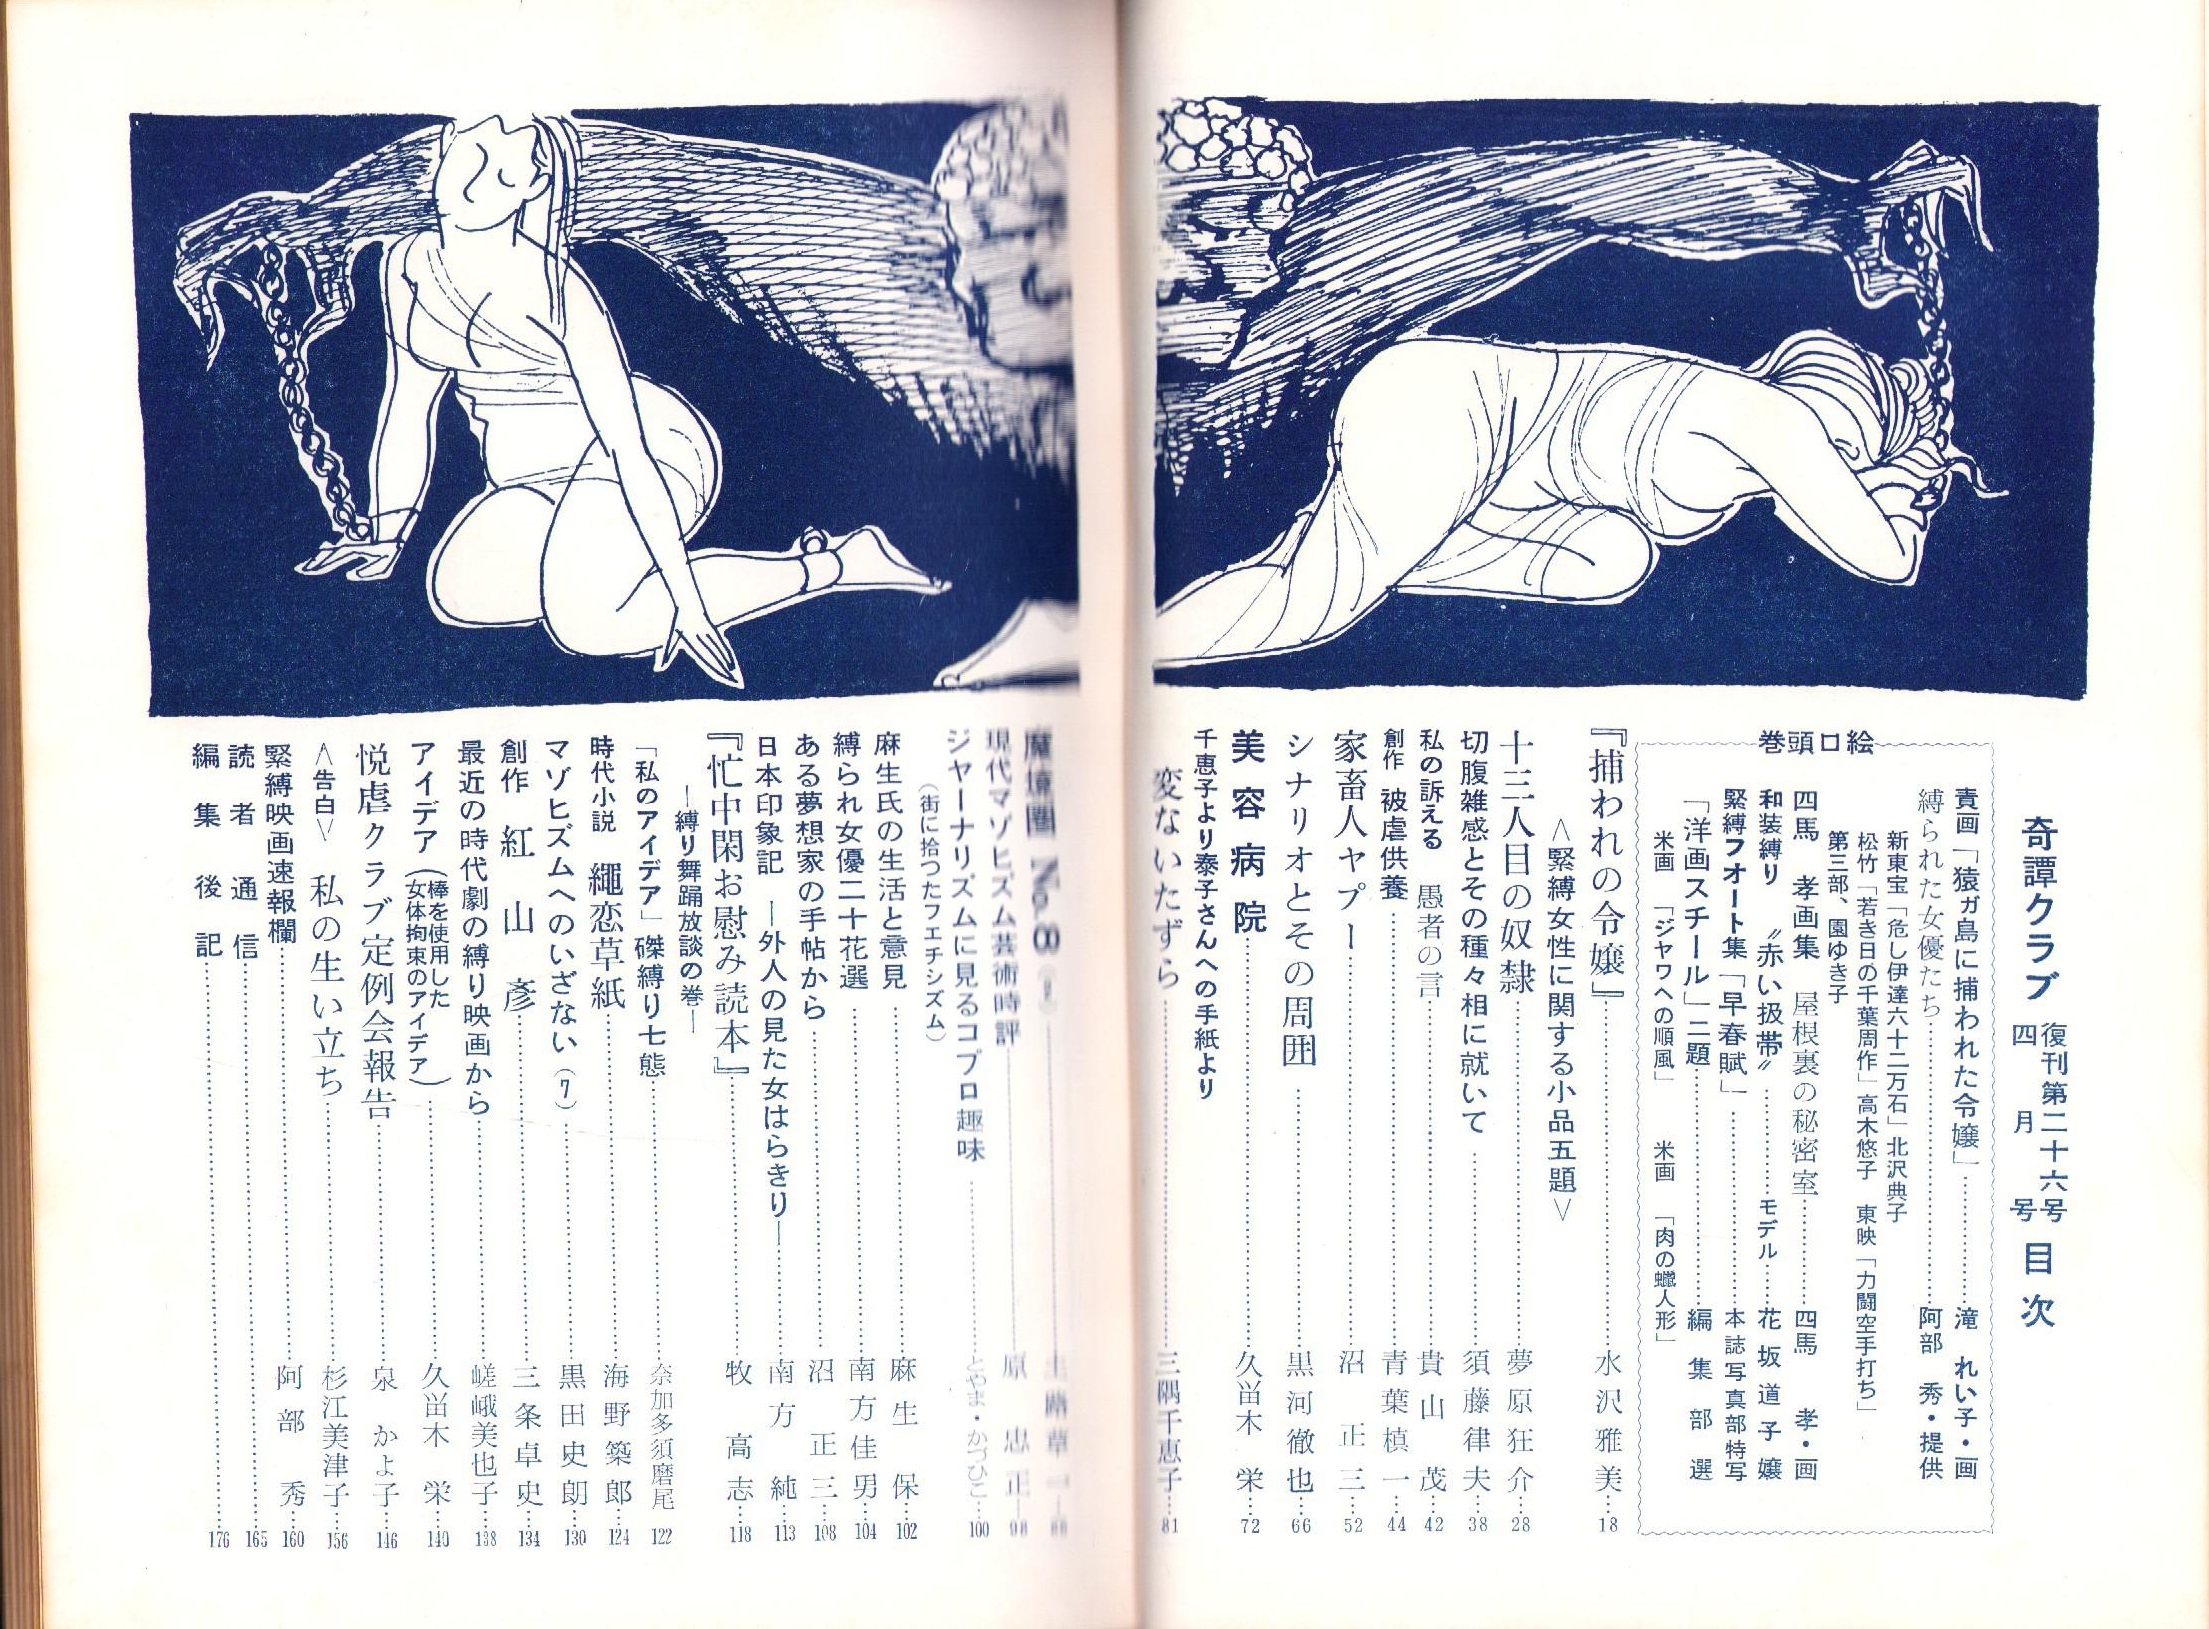 奇譚クラブ 復刊第二十六号 四月号 目次
巻頭口絵
責画「猿ガ島に捕われた令嬢」…………滝 れい子・画
縛られた女優たち…………阿部 秀・提供
新東宝「危し伊達六十二万石」北沢典子
松竹「若き日の千葉周作」高木悠子 東映「力闘空手打ち」
第三部、園ゆき子
四馬 孝画集 屋根裏の秘密室…………四馬 孝・画
和装縛り 〝赤い扱帯〟…………モデル…花坂道子嬢
緊縛フオート集「早春賦」…………本誌写真部特写
「洋画スチール」二題…………編集部選
米画 「ジヤワへの順風」 米画 「肉の蠟人形」
『捕われの令嬢』…………水沢雅美…18
<緊縛女性に関する小品五題>
十三人目の奴隷…………夢原狂介…28
切腹雑感とその種々相に就いて…………須藤律夫…38
私の訴える 愚者の言…………貴山茂…42
創作 被虐供養…………青葉槙一…44
家畜人ヤプー…………沼正三…52
シナリオとその周囲…………黒河徹也…66
美容病院…………久留木 栄…72
千恵子より泰子さんへの手紙より
変ないたずら…………三隅千恵子…81
魔境圏 No.8
現代マゾヒズム芸術時評…………原 忠正…98
ジヤーナリズムに見るコプロ趣味…………とやま・かづひこ…100
(街に拾つたフエチシズム)
麻生氏の生活と意見…………麻生 保…102
縛られ女優二十花選…………南方佳男…104
ある夢想家の手帖から…………沼正三…108
日本印象記 ―外人の見た女はらきり―…………南方 純…113
『忙中閑お慰み読本』…………牧 高志…118
―縛り舞踊放談の巻―
「私のアイデア」磔縛り七態…………奈加多須磨尾…122
時代小説 縄恋草紙…………海野築郎…124
マゾヒズムへのいざない(7)…………黒田史朗…130
創作 紅山彦…………三条卓史…134
最近の時代劇の縛り映画から…………嵯峨美也子…138
アイデア(棒を使用した女体拘束のアイデア)…………久留木 栄…140
悦虐クラブ定例会報告…………泉 かよ子…146
<告白> 私の生い立ち…………杉江美津子…156
緊縛映画速報欄…………阿部 秀…160
読者通信…………165
編集後記…………176